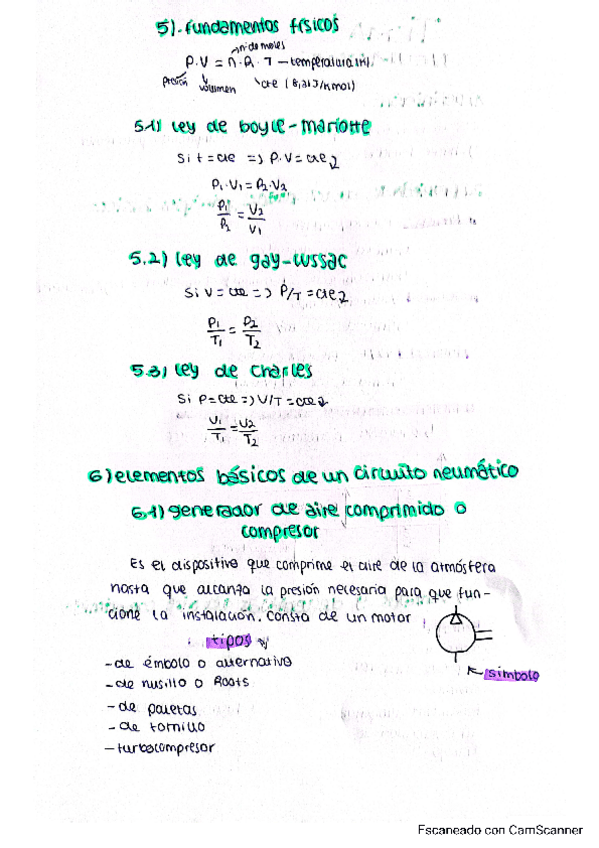 5).-fundamentos físicos
nºde moles
P.V = n.R.T - temperatura (K)
presión volumen cte (8,31J/Kmol)
5.1) ley de boyle-mariotte
Si t=cte => P.V=cte2
P1.V1=P2.V2
P1/P2 = V2/V1
5.2) ley de gay-lussac
Si V=cte => P/T=cte2
P1/T1 = P2/T2
5.3) ley de charles
Si P=cte => V/T=cte2
V1/T1 = V2/T2
6) elementos básicos de un circuito neumático
6.1) generador de aire comprimido o
compresor
Es el dispositivo que comprime el aire de la atmósfera
hasta que alcanza la presión necesaria para que fun-
cione la instalación. consta de un motor
tipos
-de émbolo o alternativo
-de husillo o Roots
-de paletas
-de tornillo
-turbocompresor
símbolo
Escaneado con CamScanner